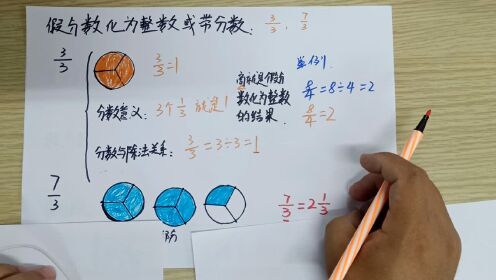 假分数化为整数或带分数: 3/3, 7/3
3/3
3/3=1
分数意义: 3个1/3 就是1
分数与除法关系: 3/3=3÷3=1
商就是假分
数化为整数
的结果.
举例
8/4=8÷4=2
8/4=2
7/3
7/3=2 1/3